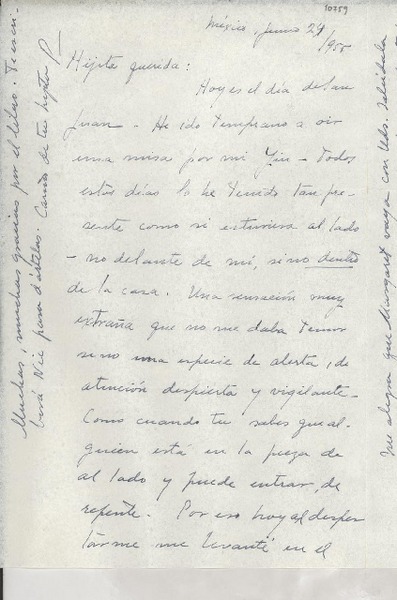 10759
México, junio 24
/955
Hijita querida:
Hoy es el día de San
Juan - He ido temprano a oir
una misa por mi Yin - Todos
estos días lo he tenido tan pre-
sente como si estuviera al lado
- no delante de mí, sino dentro
de la casa. Una sensación muy
extraña que no me daba temor
sino una especie de alerta, de
atención despierta y vigilante -
Como cuando tu sabes que al-
guien está en la pieza de
al lado y puede entrar, de
repente. Por eso hoy al desper
tarme me levanté en el
Muchas, muchas gracias por el libro. Te escri-
birá para dártelas. Cariños de tu
me alegra que Margaret vaya con Uds. Salúdala